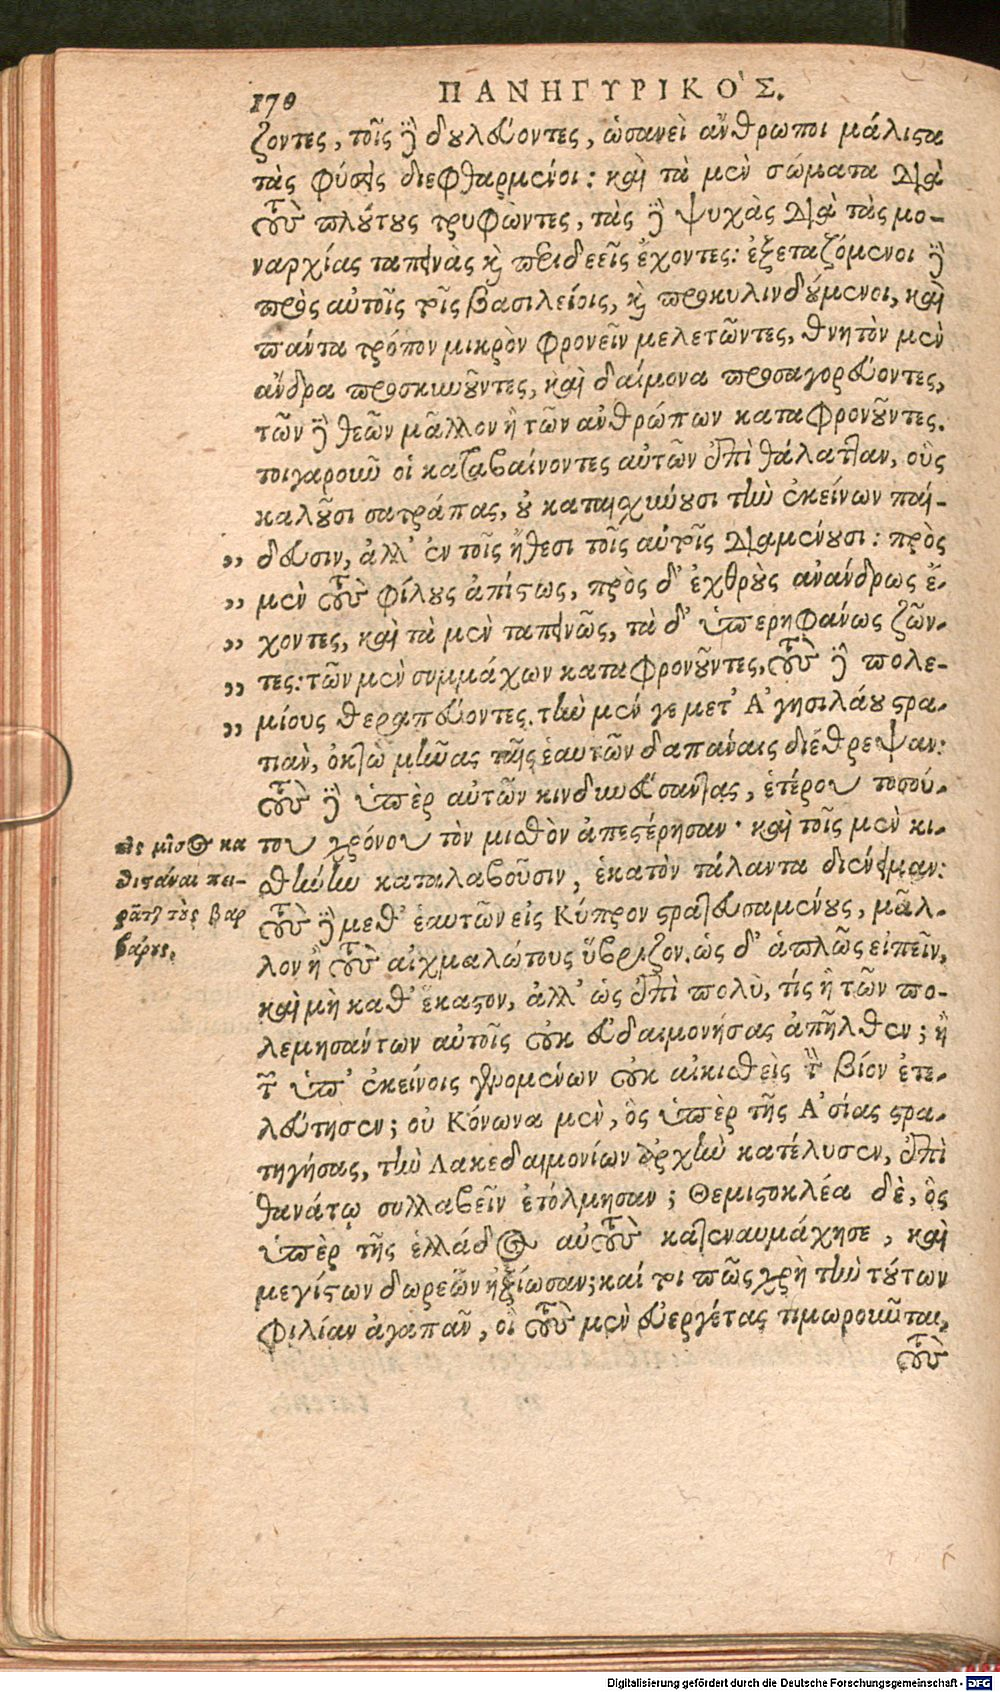 170 ΠΑΝΗΓΥΡΙΚΟΣ.
ζοντες, τοῖς δὲ δουλεύοντες, ὡσανεὶ ἄνθρωποι μάλιστα
τὰς φύσεις διεφθαρμένοι: καὶ τὰ μὲν σώματα διὰ
τοὺς πλούτους τρυφῶντες, τὰς δὲ ψυχὰς διὰ τὰς μο-
ναρχίας ταπεινὰς καὶ περιδεεῖς ἔχοντες: ἐξεταζόμενοι δὲ
πρὸς αὐτοῖς τοῖς βασιλείοις, καὶ προκυλινδούμενοι, καὶ
πάντα τρόπον μικρὸν φρονεῖν μελετῶντες, θνητὸν μὲν
ἄνδρα προσκυνοῦντες, καὶ δαίμονα προσαγορεύοντες,
τῶν δὲ θεῶν μᾶλλον ἢ τῶν ἀνθρώπων καταφρονοῦντες.
τοιγαροῦν οἱ καταβαίνοντες αὐτῶν ἐπὶ θάλατταν, οὓς
καλοῦσι σατράπας, οὐ καταισχύνουσι τὴν ἐκείνων παί-
„ δευσιν, ἀλλ' ἐν τοῖς ἤθεσι τοῖς αὐτοῖς διαμένουσι: πρὸς
„ μὲν τοὺς φίλους ἀπίστως, πρὸς δ' ἐχθροὺς ἀνάνδρως ἔ-
„ χοντες, καὶ τὰ μὲν ταπεινῶς, τὰ δ' ὑπερηφάνως ζῶν-
„ τες: τῶν μὲν συμμάχων καταφρονοῦντες, τοὺς δὲ πολε-
„ μίους θεραπεύοντες. τὴν μέν γε μετ' Ἀγησιλάου στρα-
τιὰν, ὀκτὼ μῆνας ταῖς ἑαυτῶν δαπάναις διέθρεψαν:
τοὺς δὲ ὑπὲρ αὐτῶν κινδυνεύσαντας, ἑτέρου τοσού-
του χρόνου τὸν μισθὸν ἀπεστέρησαν· καὶ τοῖς μὲν κι-
σθήνην καταλαβοῦσιν, ἑκατὸν τάλαντα διένειμαν:
τοὺς δὲ μεθ' ἑαυτῶν εἰς Κύπρον στρατευσαμένους, μᾶλ-
λον ἢ τοὺς αἰχμαλώτους ὕβριζον. ὡς δ' ἁπλῶς εἰπεῖν,
καὶ μὴ καθ' ἕκαστον, ἀλλ' ὡς ἐπὶ πολὺ, τίς ἢ τῶν πο-
λεμησάντων αὐτοῖς οὐκ εὐδαιμονήσας ἀπῆλθεν; ἢ
τῶν ὑπ' ἐκείνοις γενομένων οὐκ αἰκισθεὶς τὸν βίον ἐτε-
λεύτησεν; οὐ Κόνωνα μὲν, ὃς ὑπὲρ τῆς Ἀσίας στρα-
τηγήσας, τὴν Λακεδαιμονίων ἀρχὴν κατέλυσεν, ἐπὶ
θανάτῳ συλλαβεῖν ἐτόλμησαν; Θεμιστοκλέα δὲ, ὃς
ὑπὲρ τῆς ἑλλάδος αὐτοὺς κατεναυμάχησε, καὶ
μεγίστων δωρεῶν ἠξίωσαν; καί τοι πῶς χρὴ τὴν τούτων
φιλίαν ἀγαπᾶν, οἳ τοὺς μὲν εὐεργέτας τιμωροῦνται,
τοὺς
κα
πει-
τοὺς βαρ
βάρους.
Digitalisierung gefördert durch die Deutsche Forschungsgemeinschaft - DFG